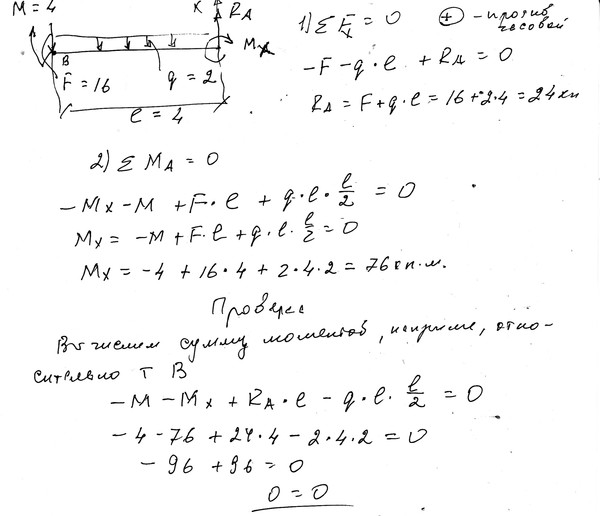 M = 4
x R_A
M_x
B
F = 16
q = 2
l = 4
1) Σ F_i = 0 (+) - против часовой
-F - q·l + R_A = 0
R_A = F + q·l = 16 + 2·4 = 24 кн
2) Σ M_A = 0
-M_x - M + F·l + q·l·l/2 = 0
M_x = -M + F·l + q·l·l/2 = 0
M_x = -4 + 16·4 + 2·4·2 = 76 кн.м.
Проверка
Вычислем сумму моментов, наприме, отно-
сительно т В
-M - M_x + R_A·l - q·l·l/2 = 0
-4 - 76 + 24·4 - 2·4·2 = 0
-96 + 96 = 0
0 = 0